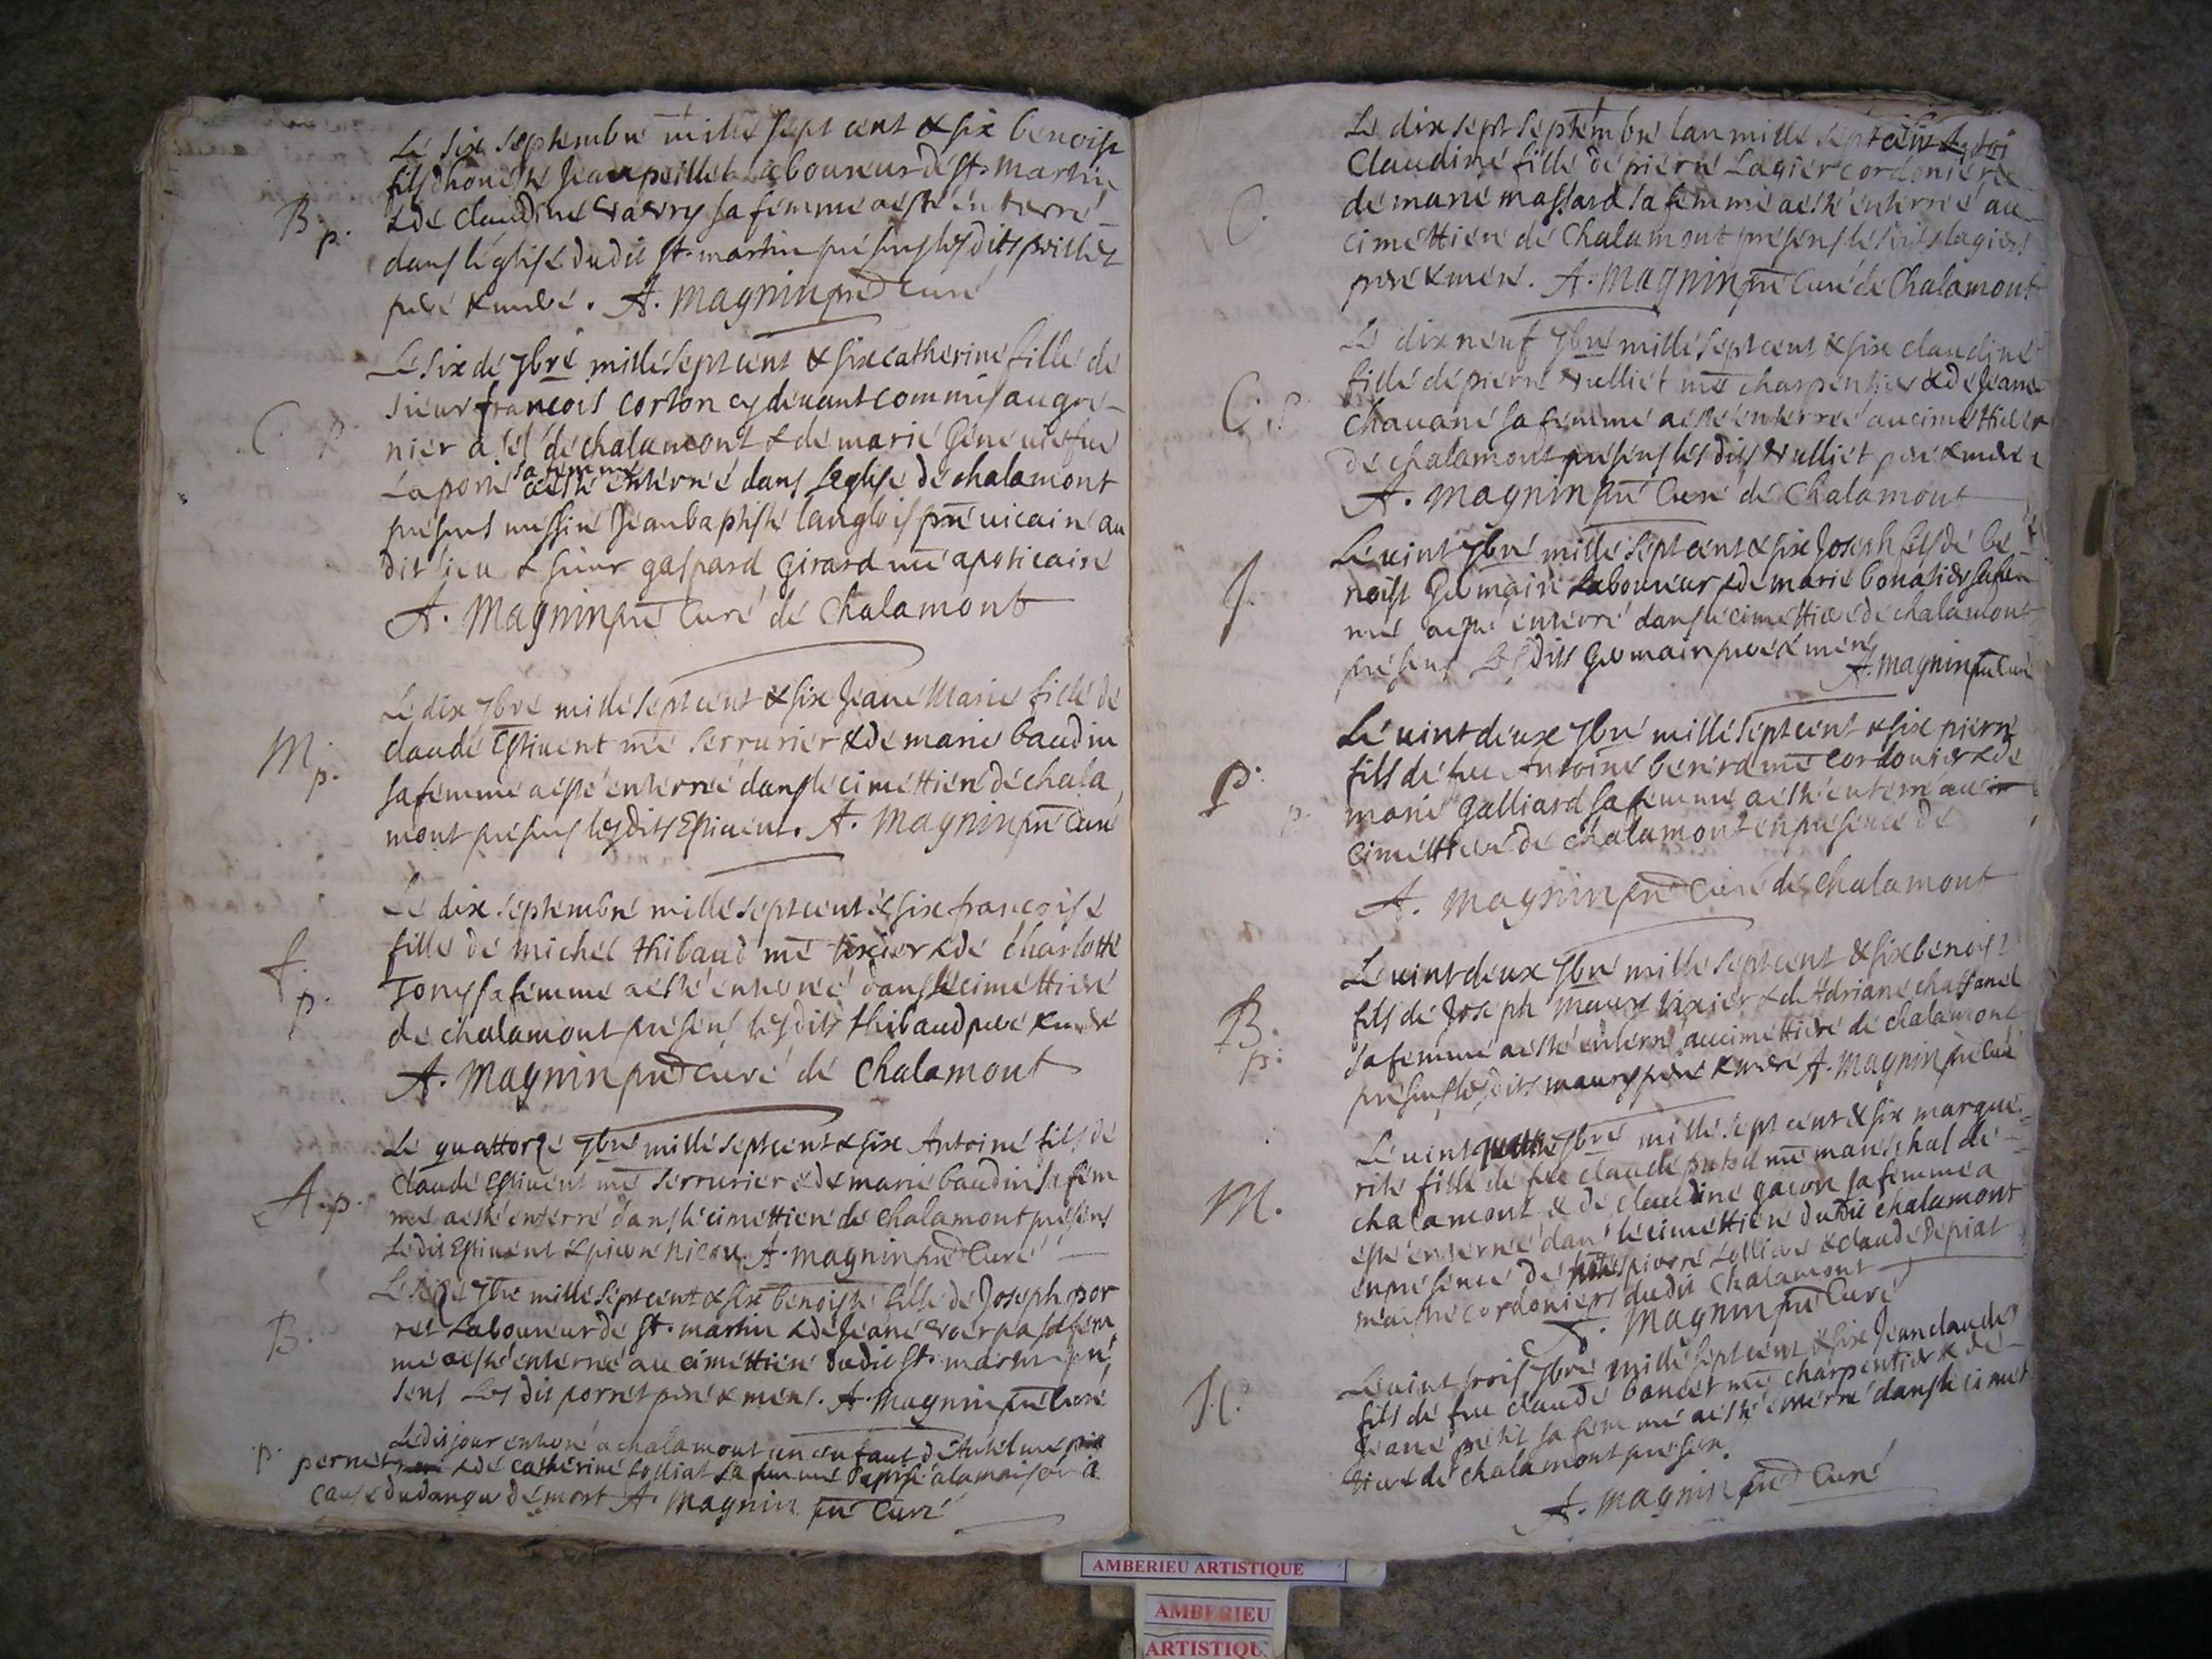 Le six septembre mille sept cent & six benoist
fils dhoneste Jean peillet laboureur de st. martin
& de claudine vavry sa femme a esté enterré
B p.
dans léglise dudit st. martin presens lesdits peillet
pere & mere. A. Magnin pre Curé
Le six de 7bre mille sept cent & six catherine fille de
sieur francois corton cy devant commis au gre-
C p
nier a sel de chalamont & de marie Geneviefve
Laporte sa femme a esté enterrée dans leglise de chalamont
presens messire Jean baptiste langlois pre vicaire au
dit lieu & sieur gaspard Girard me apoticaire
A. Magnin pre Curé de Chalamont
Le dix 7bre mille sept cent & six Jeane Marie fille de
claude Estivent me serrurier & de marie baudin
M p.
sa femme a esté enterrée dans le cimettiere de chala
mont presens lesdits Estivent. A. Magnin pre Curé
Le dix septembre mille sept cent & six francoise
fille de michel thibaud me tixier & de charlotte
f. p.
Tony sa femme a esté enterrée dans le cimettiere
de chalamont presens lesdits thibaud pere & mere
A. Magnin pre Curé de Chalamont
Le quattorze 7bre mille sept cent & six Antoine fils de
claude Estivent me serrurier & de marie baudin sa fem
A. p.
me a esté enterré dans le cimettiere de Chalamont presens
ledit Estivent & pierre nicou. A. magnin pre Curé
Le 7bre mille sept cent & six benoiste fille de Joseph por
ret Laboureur de st. martin & de Jeane sa fem
B.
me a esté enterrée au cimettiere dudit st. martin pre
sens Les dit porret pere & mere. A. Magnin pre Curé
Ledit jour enterré a chalamont un enfant dAntelme
p. pernet & de catherine Lolliat sa femme baptisé a la maison a
cause du danger de mort A. Magnin pre Curé
Le dix sept septembre lan mille sept cent
Claudine fille de pierre Lagier cordonier &
de marie massard sa femme a esté enterrée au
C.
cimettiere de Chalamont presens lesdits lagier
pere & mere. A. Magnin pre Curé de Chalamont
Le dix neuf 7bre mille sept cent & six claudine
fille de pierre vulliet me charpentier & de Jeane
C. p.
chavane sa femme a esté enterrée au cimettiere
de chalamont presens lesdits vulliet pere & mere
A. Magnin pre Curé de Chalamont
Le vint 7bre mille sept cent & six Joseph fils de be-
noist Germain Laboureur & de marie bonatier sa fem
J.
me a esté enterré dans le cimettiere de chalamont
presens Lesdits Germain pere & mere
A. Magnin pre Curé
Le vint deux 7bre mille sept cent & six pierre
fils de feu Antoine bererd me cordonier & de
P. p.
marie Galliard sa femme a esté enterré au
cimettiere de chalamont en presence de
A. Magnin pre Curé de chalamont
Le vint deux 7bre mille sept cent & six benoist
fils de Joseph maury tixier & de Adriane chassanel
B. p.
sa femme a esté enterré au cimettiere de chalamont
presens lesdits maury pere & mere A. Magnin pre Curé
Le vint 7bre mille sept cent & six margue
rite fille de feu claude putod me mareschal de
M.
chalamont & de claudine gacon sa femme a
esté enterrée dans le cimettiere dudit chalamont
en presence de pierre Lollier & claude depiat
maistre cordoniers dudit Chalamont
A. Magnin pre Curé
Le vint trois 7bre mille sept cent & six Jean claude
fils de feu claude bancet me charpentier & de
J. C.
Jeane petit sa femme a esté enterré dans le cimet
tiere de chalamont presens
A. Magnin pre Curé
AMBERIEU ARTISTIQUE
AMBERIEU
ARTISTIQU